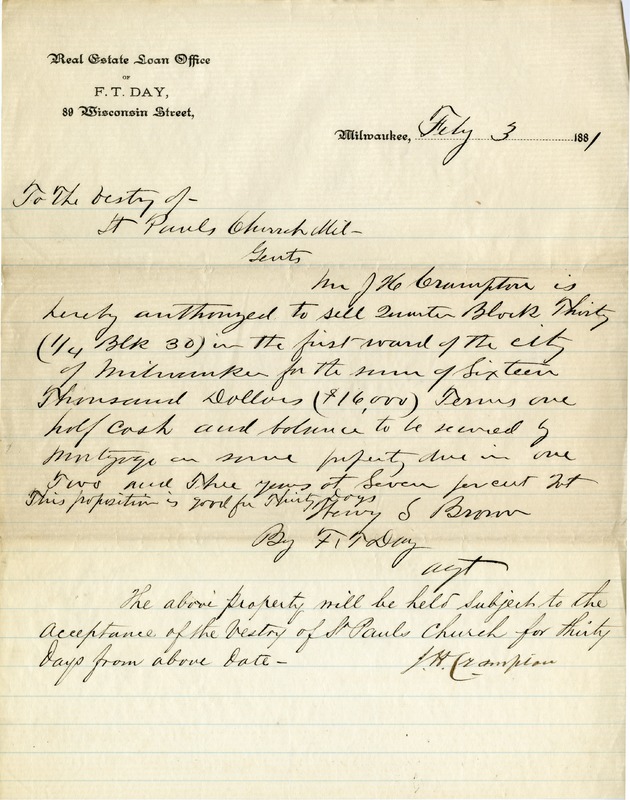 Real Estate Loan Office
OF
F. T. DAY,
89 Wisconsin Street,
Milwaukee, Feby 3 1881
To The Vestry of -
St Pauls Church Mil -
Gents
Mr J H Crampton is
hereby authorized to sell Quarter Block Thirty
(1/4 Blk 30) in the first ward of the city
of Milwaukee for the sum of Sixteen
Thousand Dollars ($16,000) Terms one
half cash and balance to be secured by
mortgage on same property due in one
Two and Three years at Seven per cent Int
This proposition is good for Thirty Days
Henry S Brown
By F. T Day
agt
The above property will be held subject to the
acceptance of the Vestry of St Pauls Church for thirty
days from above date -
J. H. Crampton